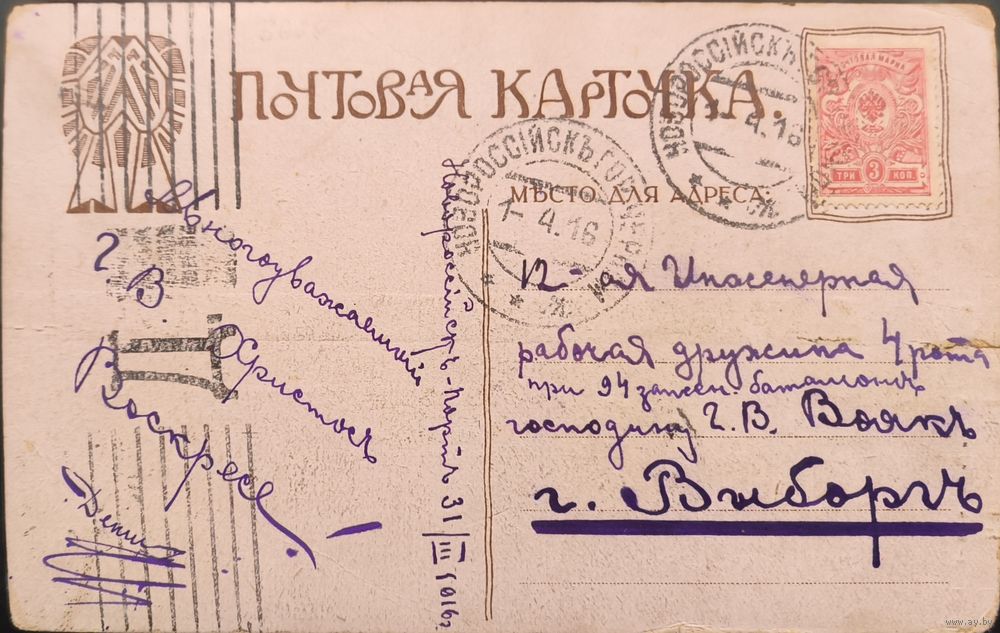 ПОЧТОВАЯ КАРТОЧКА.
МѢСТО ДЛЯ АДРЕСА:
НОВОРОССІЙСКЪ
4.16
НОВОРОССІЙСКЪ
1 4.16
ПОЧТОВАЯ МАРКА
ТРИ 3 КОП
Многоуважаемый
Г. В.
Христосъ
Воскресе!
Новороссійскъ-портъ 31/III 1916 г
12-ая Инженерная
рабочая дружина 4 рота
при 94 запасн. баталіонѣ
господину Г. В. Воякъ
г. Выборгъ
www.ay.by